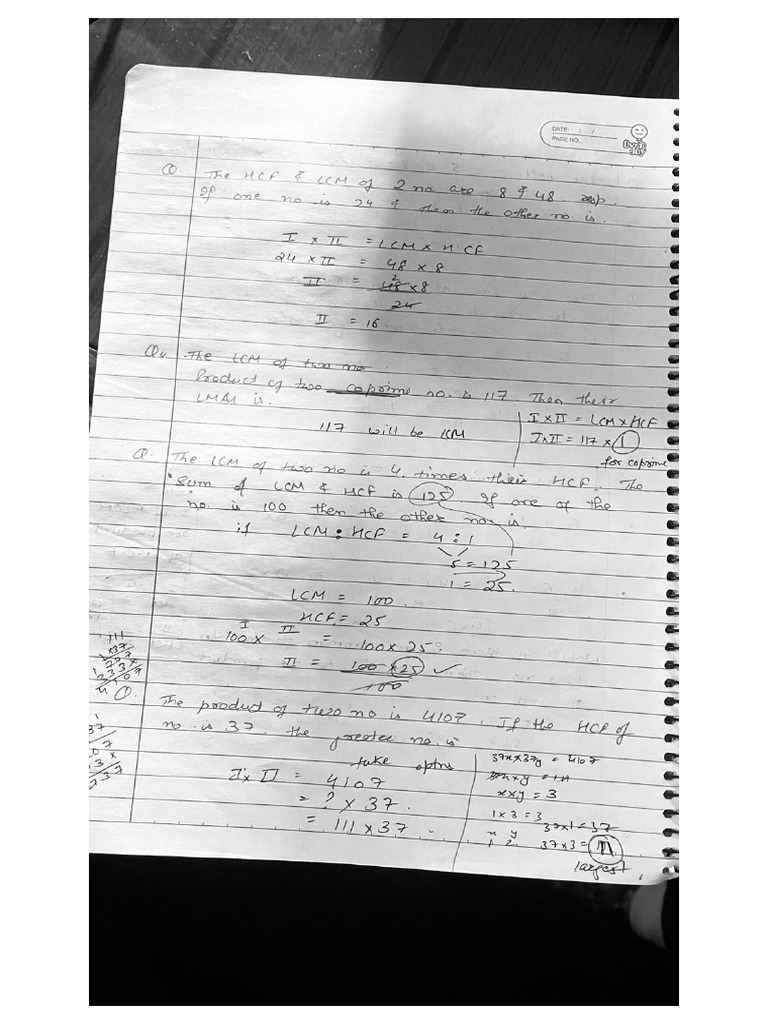 DATE: / /
PAGE NO.
Q. The HCF & LCM of 2 no are 8 & 48 resp.
If one no. is 24 & then the other no. is.
I x II = LCM x HCF
24 x II = 48 x 8
II = 48 x 8
2
24
II = 16.
Qu The LCM of two no.
Product of two coprime no. is 117. Then their
is.
117 will be LCM
I x II = LCM x HCF
I x II = 117 x 1
for coprime
Q. The LCM of two no is 4 times their HCF. The
Sum of LCM & HCF is 125 If one of the
no. is 100 then the other no. is
if LCM : HCF = 4 : 1
5 = 125
1 = 25.
LCM = 100.
HCF = 25
I II
100 x = 100 x 25
II = 100 x 25 ✓
100
111
x37
Q.
The product of two no is 4107. If the HCF of
no. is 37. the greater no. is
take optns
I x II = 4107
= ? x 37.
= 111 x 37.
37x x 37y = 4107
x x y = 3
1 x 3 = 3
x y 37x1 = 37
1 2. 37x3 = 111
largest